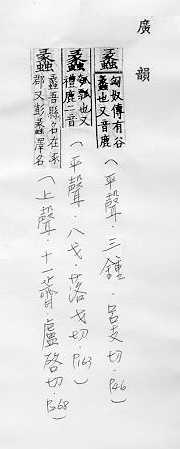 廣韻
蠡 匈奴傳有谷蠡也又音鹿(平聲.三鍾.呂支切.P46)
蠡 瓠瓢也又禮鹿二音(平聲.八戈.落戈切.P163)
蠡 蠡吾縣名在涿郡又彭蠡澤名(上聲.十一薺.盧啓切.P268)